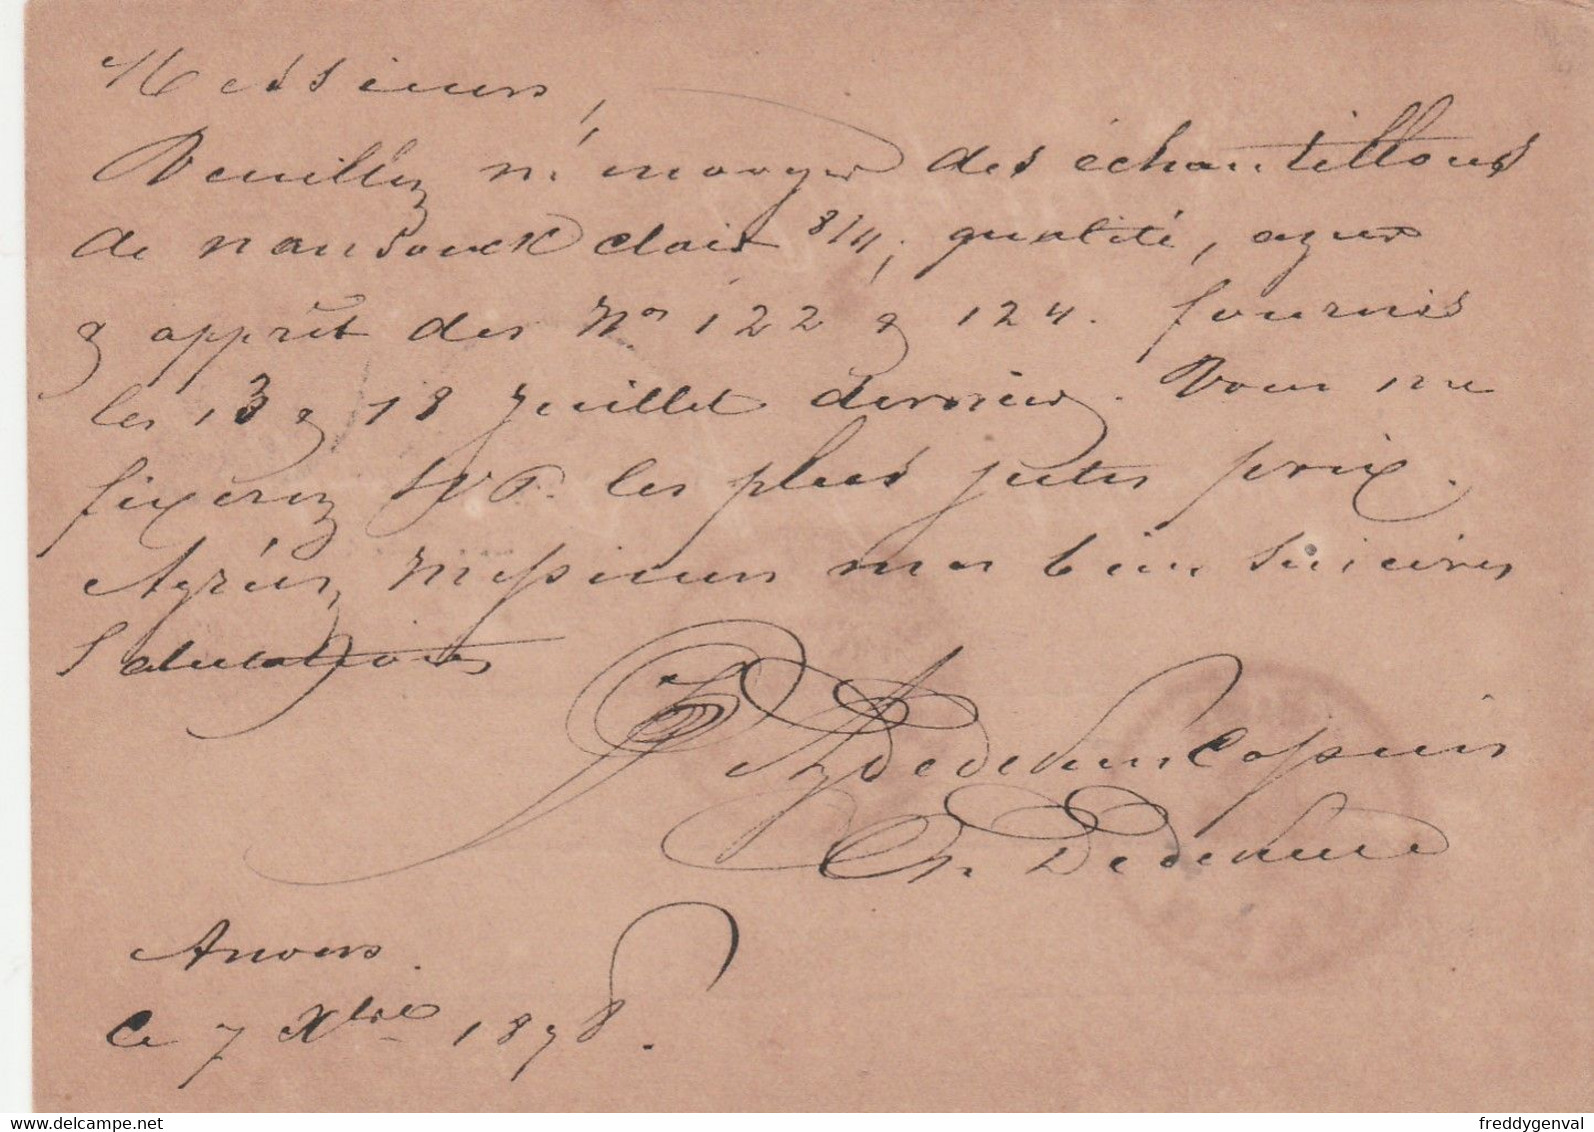 Messieurs,
Veuillez m'envoyer des échantillons
de nansouck clair 8/4, qualité, azur
& apprêt des Nos 122 & 124. fournis
les 13 & 18 Juillet dernier. Vous me
fixerez SVP. les plus justes prix.
Agréez, Messieurs mes bien sincères
Salutations
Dedeken
Ch. Dedekene
Anvers.
Ce 7 Xbre 1878.
delcampe.net
freddygenval